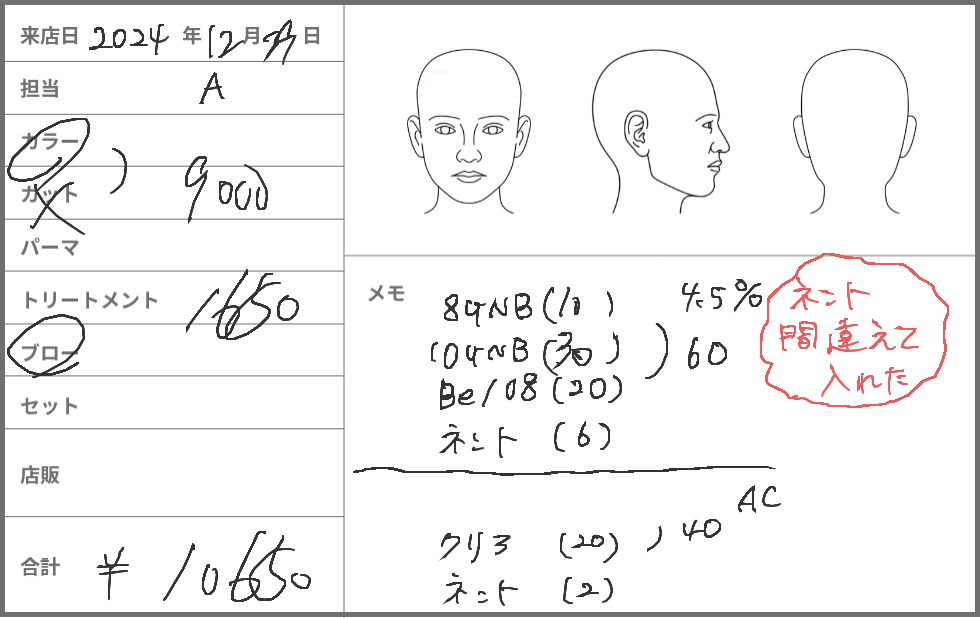 来店日 2024 年 12 月 日
担当 A
カラー
カット
9000
パーマ
トリートメント
1650
ブロー
セット
店販
合計 ¥ 10650
メモ
84NB (10) 4.5%
104NB (30) ) 60
Be/08 (20)
ネント (6)
ネント
間違えて
入れた
AC
クリア (20) ) 40
ネント (2)